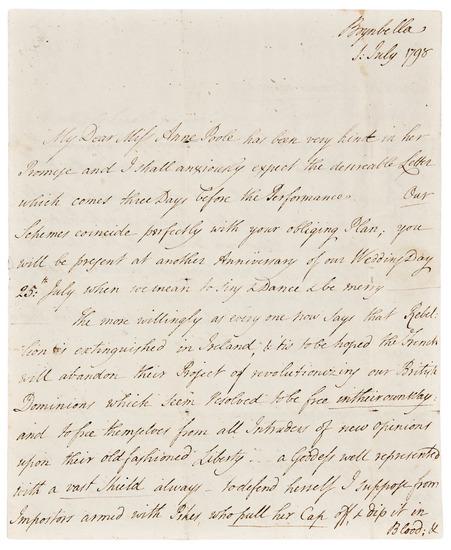 Brynbella
1: July 1798
My Dear Miss Anne Poole has been very kind in her
Promise and I shall anxiously expect the desireable Letter
which comes three Days before the Performance. Our
Schemes coincide perfectly with your obliging Plan; you
will be present at another Anniversary of our Wedding Day
25:th July when we mean to Sing & Dance & be merry
The more willingly as every one now Says that Rebel-
lion is extinguished in Ireland, & 'tis to be hoped the French
will abandon their Project of revolutionizing our British
Dominions which Seem resolved to be free in their own Way:
and to free themselves from all Intruders of new opinions
upon their old fashioned Liberty... a Goddess well represented
with a vast Shield always - to defend herself I suppose from
Impostors armed with Pikes who pull her Cap off, & dip it in
Blood; &